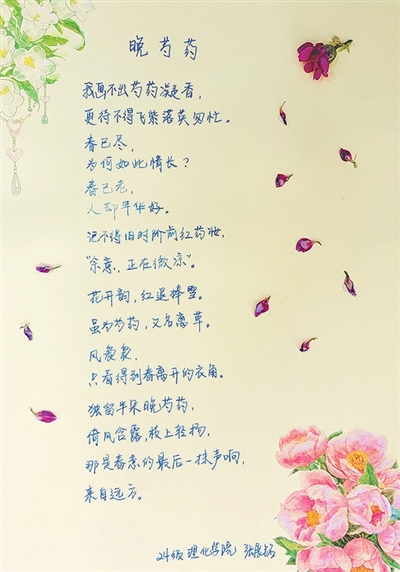 晚芍药
我画不出芍药凝香，
更待不得飞紫落英匆忙。
春已尽，
为何如此情长？
春已老，
人却年华好。
记不得旧时阶前红药妆，
“余意，正在微凉”。
花开韵，红退掩墅。
虽为芍药，又名离草。
风袅袅，
只看得到春离开的衣角。
独留半朵晚芍药，
倚风含露，枝上轻扬，
那是春意的最后一抹声响，
来自远方。
24级 理化学院 张